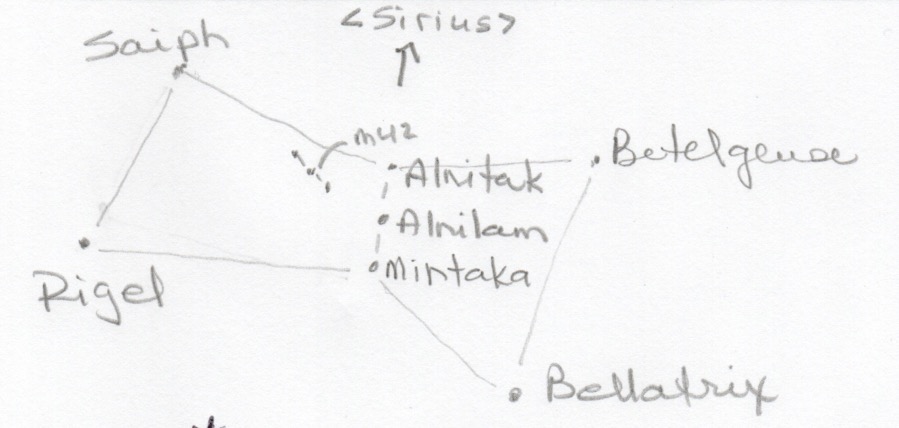 <Sirius>
Saiph
M42
Betelgeuse
Alnitak
Alnilam
Mintaka
Rigel
Bellatrix